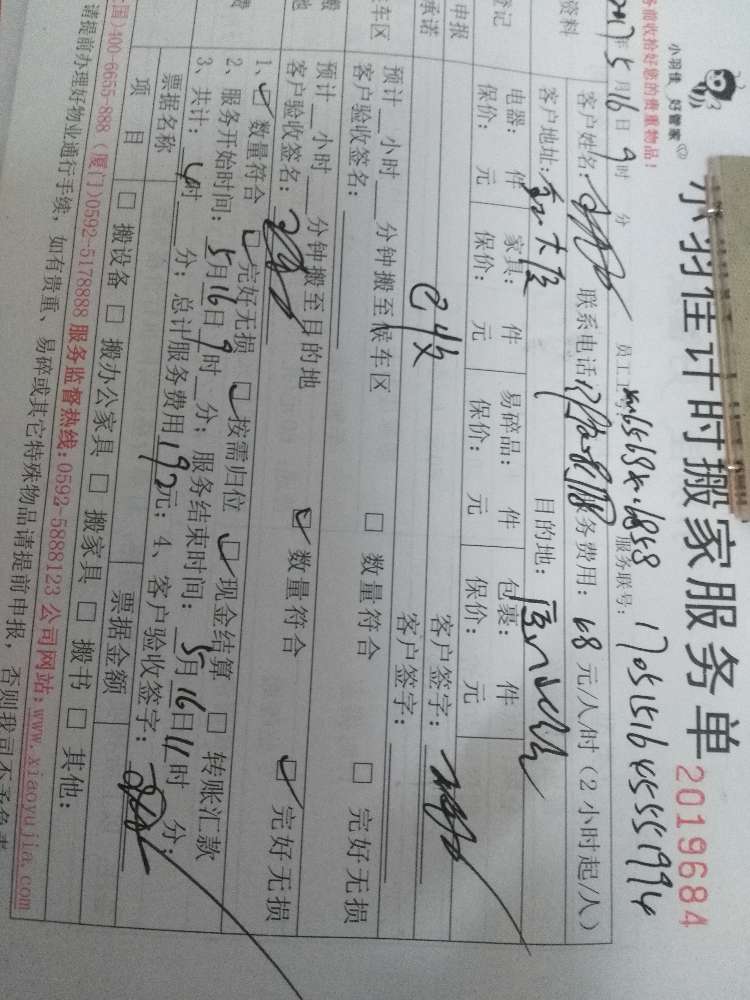 小羽佳 好管家
小羽佳计时搬家服务单 2019684
务前收拾好您的贵重物品！
员工工号： 服务联号：
2017年5月16日9时 分
资料 客户姓名： 联系电话 服务费用：68元/人/时（2小时起/人）
客户地址： 目的地：
登记 电器： 件 家具： 件 易碎品： 件 包裹： 件
保价： 元 保价： 元 保价： 元 保价： 元
申报 已收 客户签字：
承诺 客户签字：
候车区 预计__小时__分钟搬至候车区 □ 数量符合 □ 完好无损
客户验收签名：
预计__小时__分钟搬至目的地 ☑ 数量符合 ☑ 完好无损
客户验收签名：
1、☑ 数量符合 ☑ 完好无损 ☑ 按需归位 ☑ 现金结算 □ 转账汇款
2、服务开始时间：5月16日9时__分；服务结束时间：5月16日11时 分；
3、共计：4时__分；总计服务费用192元；4、客户验收签字：
票据名称 票据金额
项 目 □ 搬设备 □ 搬办公家具 □ 搬家具 □ 搬书 □ 其他：
国)400-6655-888（厦门)0592-5178888 服务监督热线:0592-5888123 公司网站:www.xiaoyujia.com
请提前办理好物业通行手续，如有贵重、易碎或其它特殊物品请提前申报，否则我司不予负责